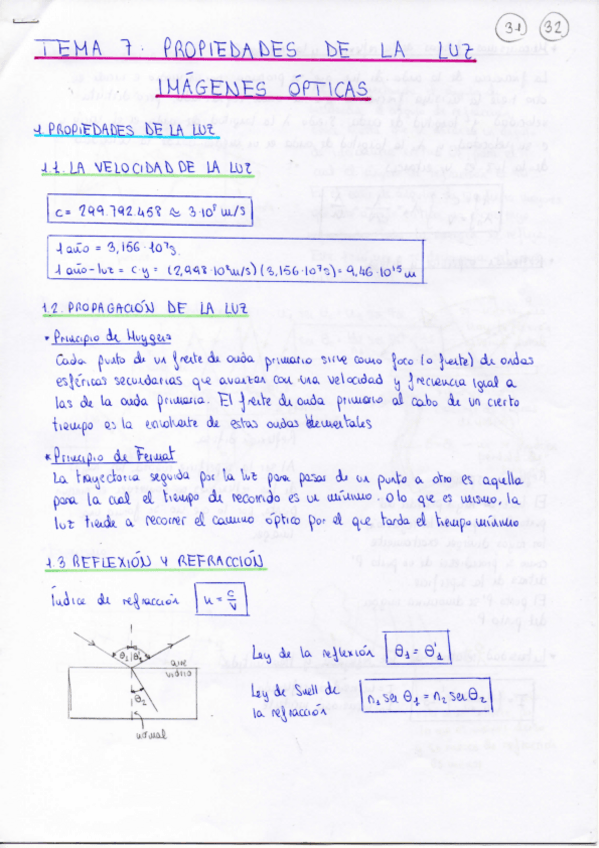 31 32
TEMA 7. PROPIEDADES DE LA LUZ
IMÁGENES ÓPTICAS
1. PROPIEDADES DE LA LUZ
1.1. LA VELOCIDAD DE LA LUZ
c = 299.792.458 ≈ 3·10⁸ m/s
1 año = 3,156·10⁷s
1 año-luz = c y = (2,998·10⁸m/s)(3,156·10⁷s) = 9,46·10¹⁵ m
1.2. PROPAGACIÓN DE LA LUZ
• Principio de Huygens
Cada punto de un frente de onda primario sirve como foco (o fuente) de ondas
esféricas secundarias que avanzan con una velocidad y frecuencia igual a
las de la onda primaria. El frente de onda primario al cabo de un cierto
tiempo es la envolvente de estas ondas elementales
• Principio de Fermat
La trayectoria seguida por la luz para pasar de un punto a otro es aquella
para la cual el tiempo de recorrido es un mínimo. O lo que es mismo, la
luz tiende a recorrer el camino óptico por el que tarda el tiempo mínimo
1.3 REFLEXIÓN Y REFRACCIÓN
Índice de refracción n = c/v
θ₁ θ'₁ aire
vidrio
θ₂
normal
Ley de la reflexión θ₁ = θ'₁
Ley de Snell de
la refracción n₁ sen θ₁ = n₂ sen θ₂